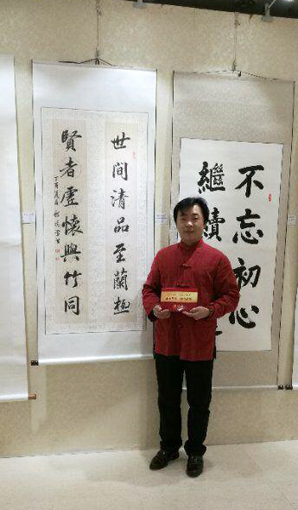 世間清品至蘭極
賢者虛懷與竹同
不忘初心
繼續